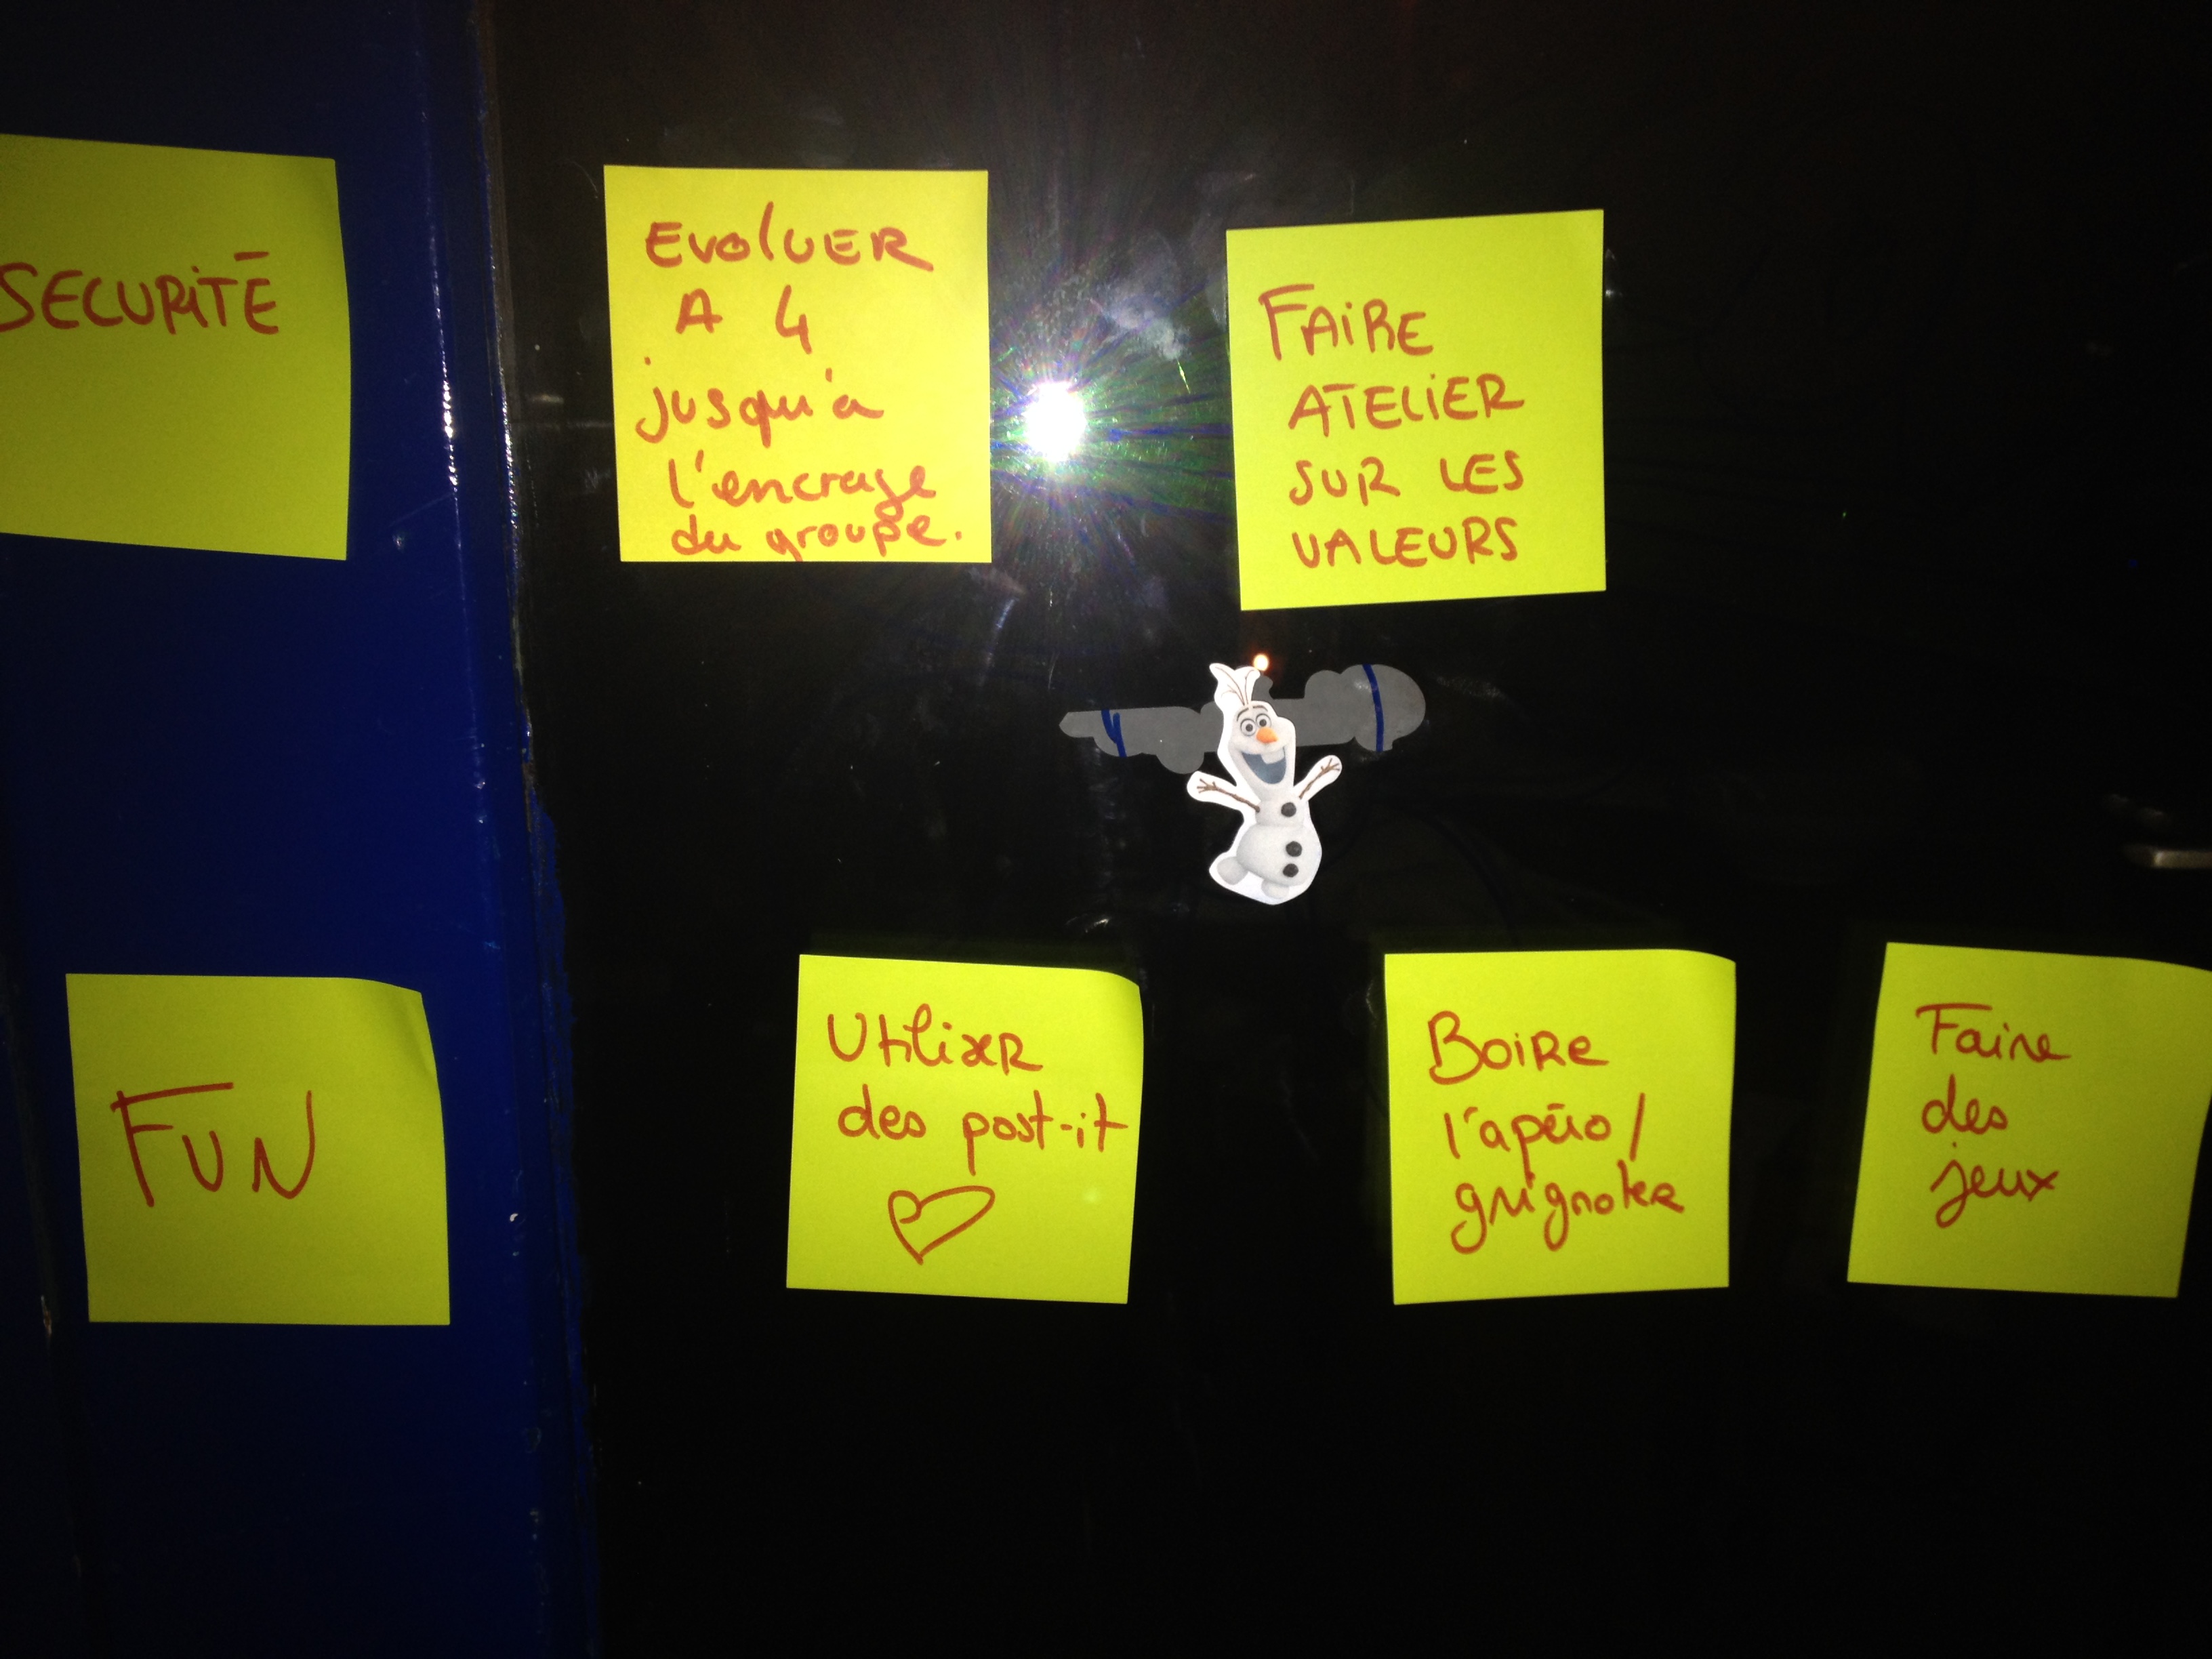 SECURITÉ
EVOLUER
A 4
jusqu'a
l'encrage
du groupe.
FAIRE
ATELIER
SUR LES
VALEURS
FUN
Utiliser
des post-it
Boire
l'apéro /
grignoter
Faire
des
jeux